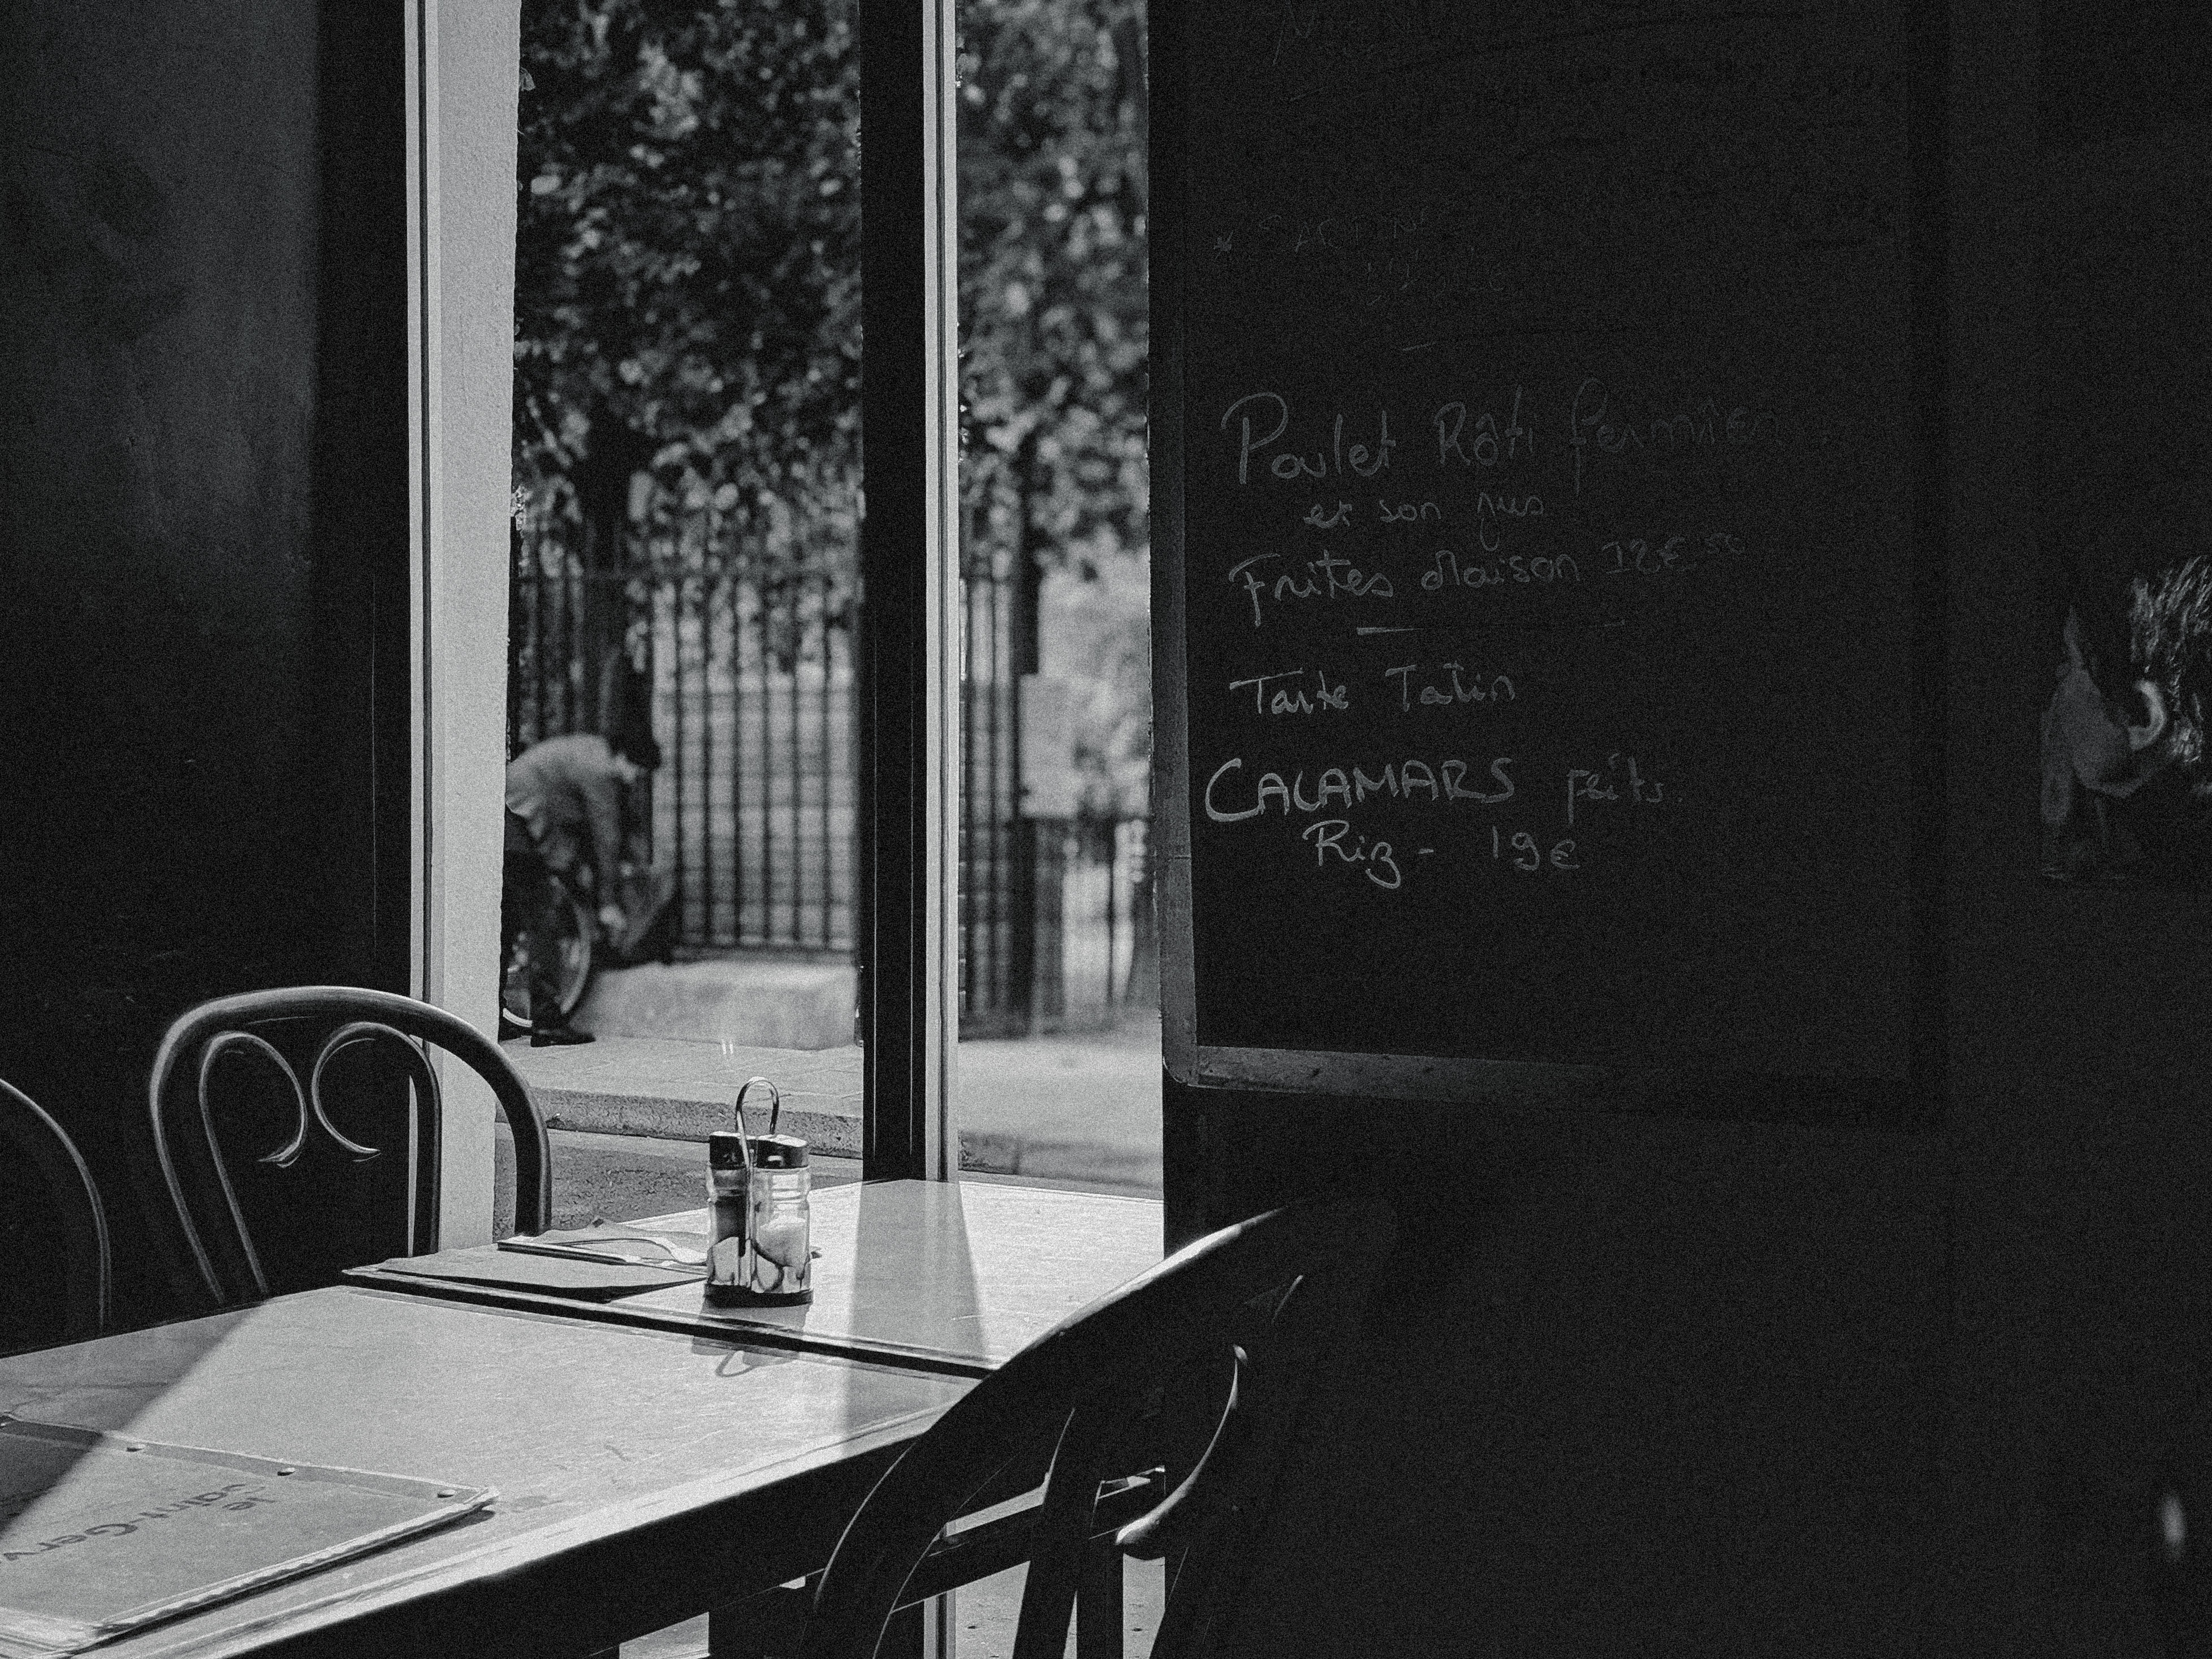 Poulet Rôti fermier
et son jus
Frites Maison 12€50
Tarte Tatin
CALAMARS
Riz - 19€
le
Saint-Gerv